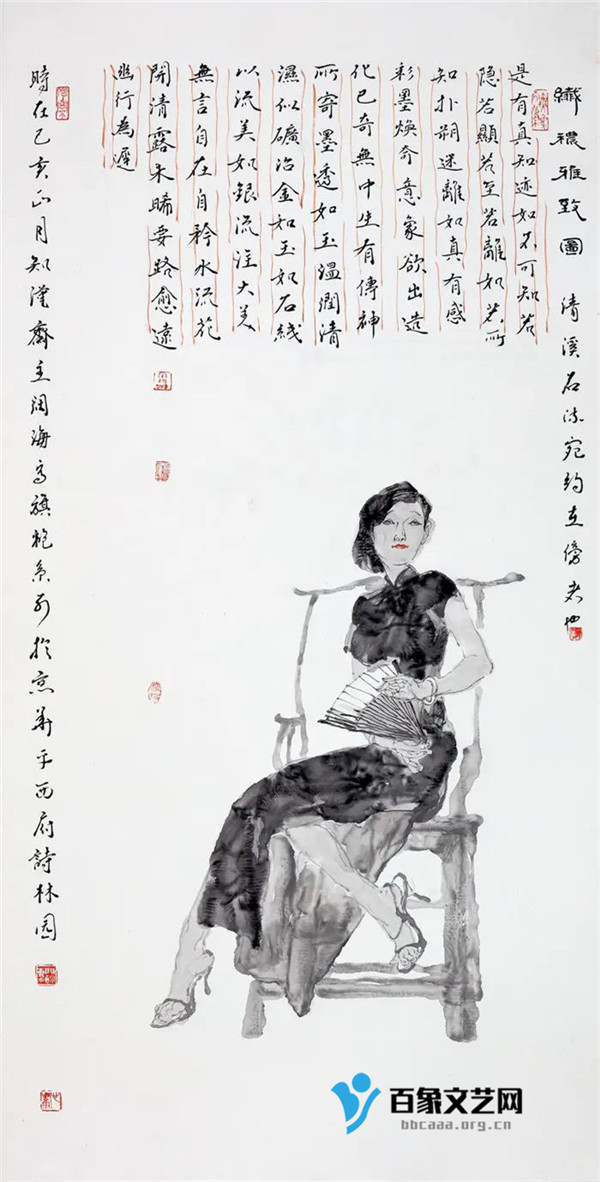 纖穠雅致圖 清溪石流宛約
是有真知迹如不可知若
隱若顯若至若離如若所
知扑朔迷離如真有感
彩墨焕奇意象欲出造
化已奇無中生有傳神
所寄墨透如玉溫潤清
濕似礦冶金如玉如石綫
以流美如銀流注大美
無言自在自矜水流花
開清露未晞要路愈遠
幽行為遲
時在己亥正月知漢齋主闊海寫旗袍系列於京華平西府詩林園
百象文艺网
bbcaaa.org.cn